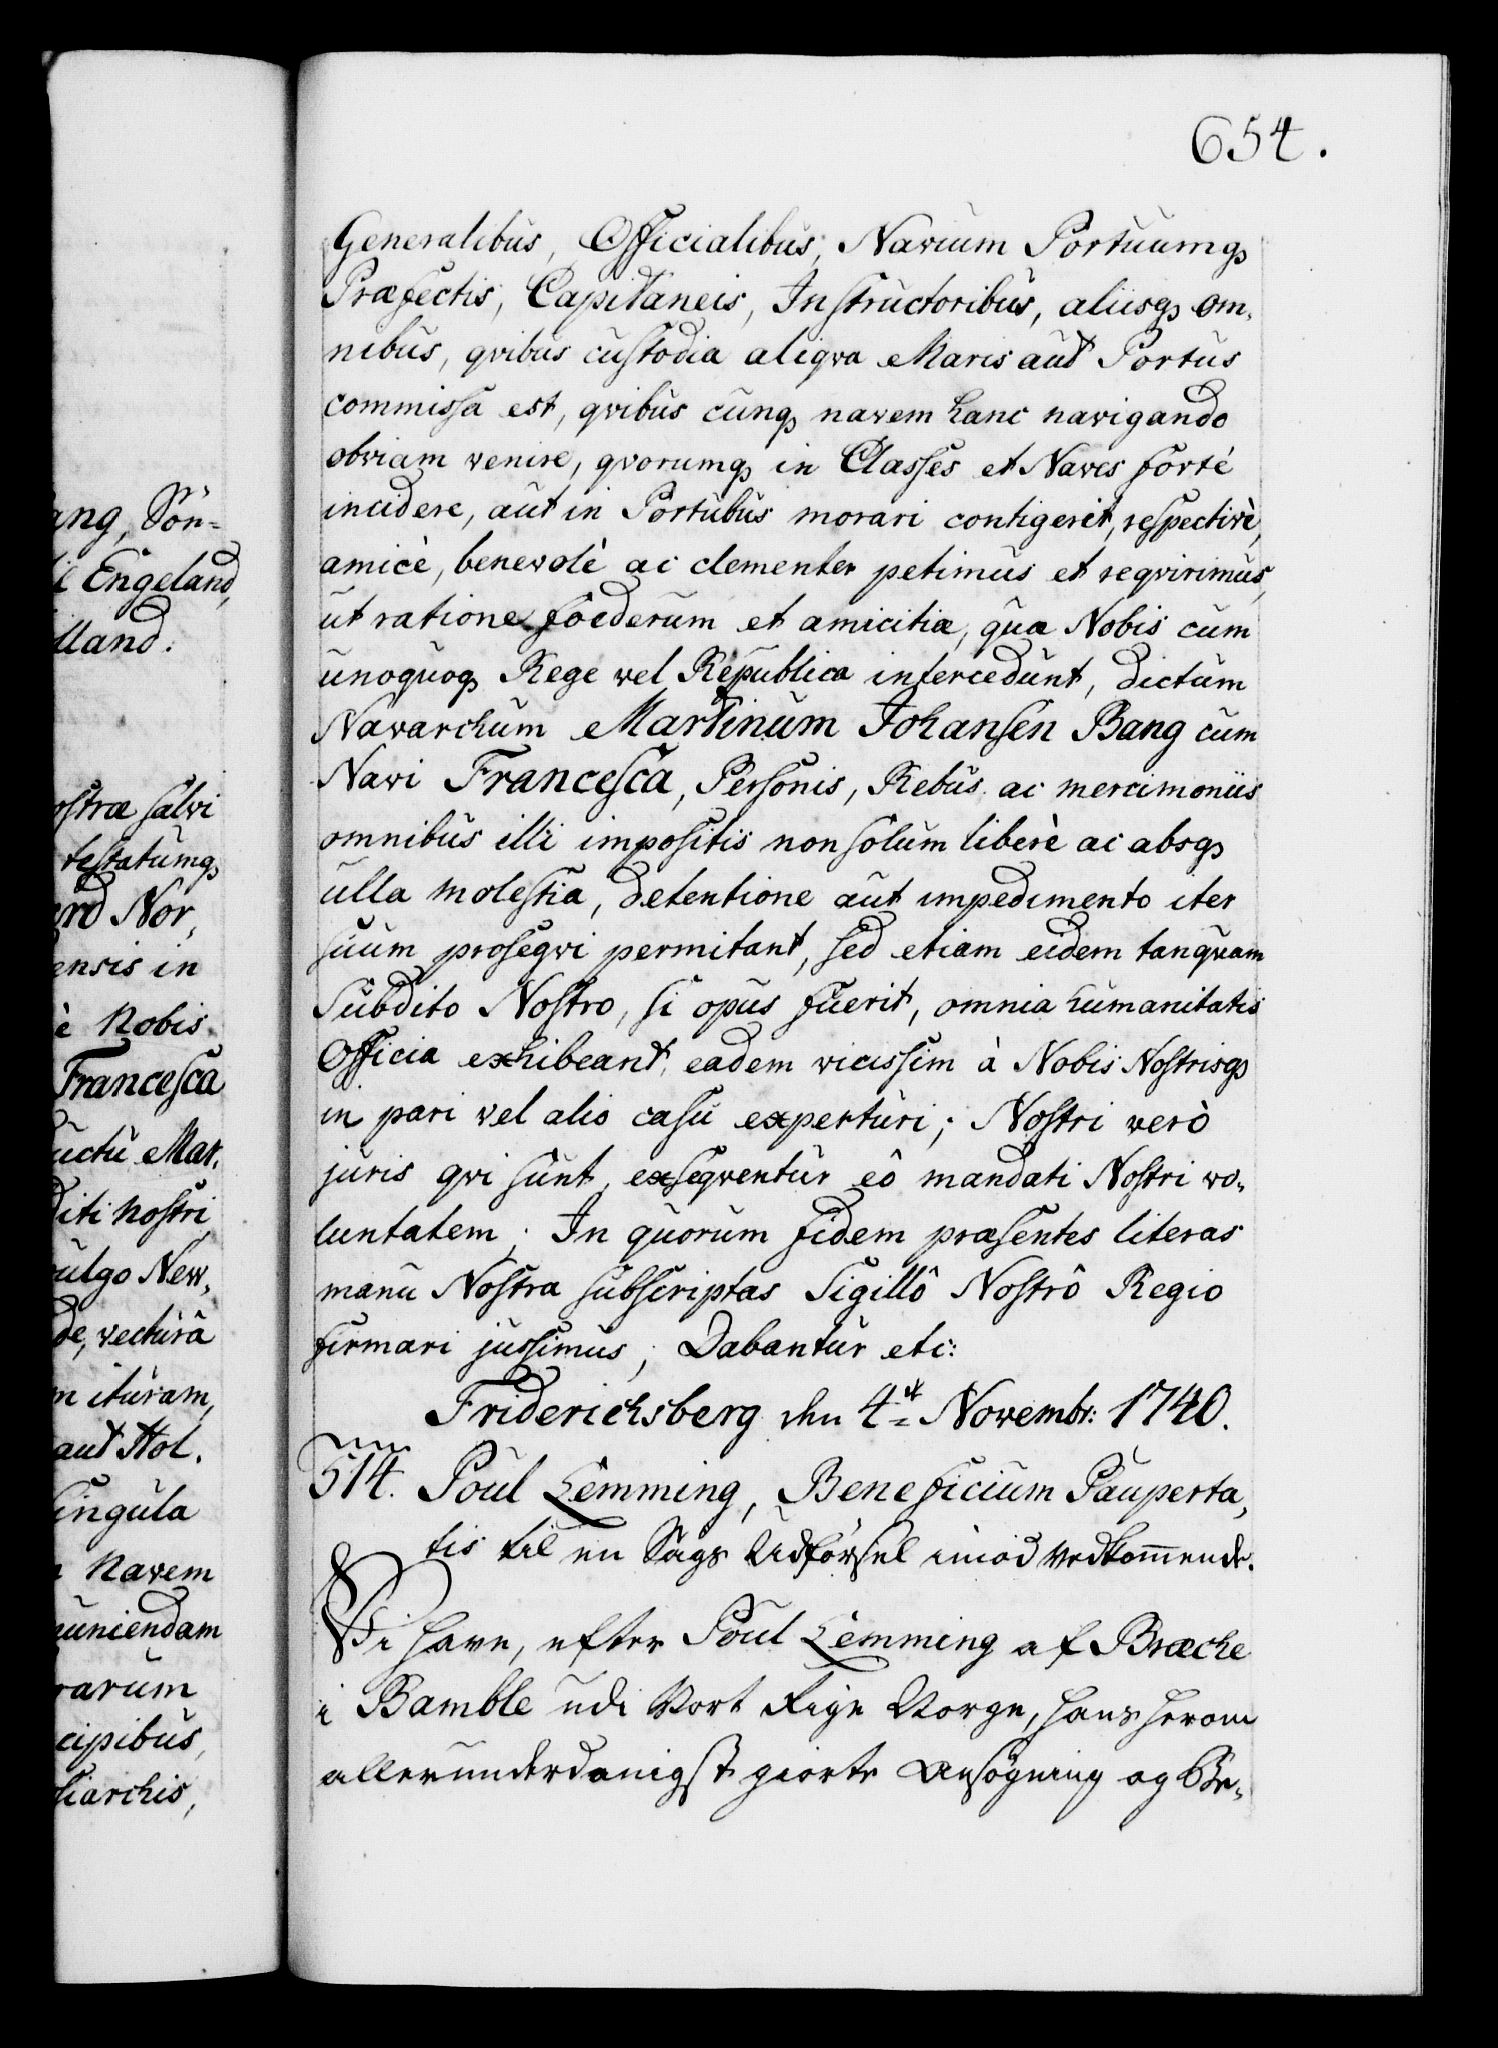 654.
Generalibus, Officialibus, Navium Portuumqꝫ
Præfectis, Capitaneis, Instructoribus, aliisqꝫ om-
nibus, qvibus custodia aliqva Maris aut Portus
commissa est, qvibus cunqꝫ navem hanc navigando
obviam venire, qvorumqꝫ in Classes et Naves fortè
incidere, aut in Portubus morari contigerit, respectivè,
amicè, benevolè ac clementer petimus et reqvirimus,
ut ratione foederum et amicitiæ, quæ Nobis cum
unoquoqꝫ Rege vel Republica intercedunt, dictum
Navarchum Martinum Johansen Bang cum
Navi Francesca, Personis, Rebus ac mercimoniis
omnibus illi impositis non solum liberè ac absqꝫ
ulla molestia, detentione aut impedimento iter
suum proseqvi permitant, sed etiam eidem tanquam
Subdito Nostro, si opus fuerit, omnia humanitatis
Officia exhibeant, eadem vicissim à Nobis Nostrisqꝫ
in pari vel alio casu experturi; Nostri verò
juris qvi sunt, exseqventur eô mandati Nostri vo-
luntatem; In quorum fidem præsentes literas
manu Nostra subscriptas Sigillô Nostrô Regio
firmari jussimus; Dabantur etc:
Friderichsberg den 4de Novembr: 1740.
514. Poul Lemming, Beneficium Pauperta-
tis til en Sags Udførsel imod Vedkommende.
Vi have, efter Poul Lemming af Bræche
i Bamble udi Vort Rige Norge, hans herom
allerunderdanigst giorte Ansøgning og Be-
ang, Sön-
il Engeland,
lland.
ostræ salvi
testatumqꝫ
ard Nor,
ensis in
è Nobis
Francesca
uctu Mar,
diti Nostri,
vulgo New,
de, vecturâ
m ituram,
aut Hol,
singula
Navem
muniendam
rarum
cipibus,
siarchis,